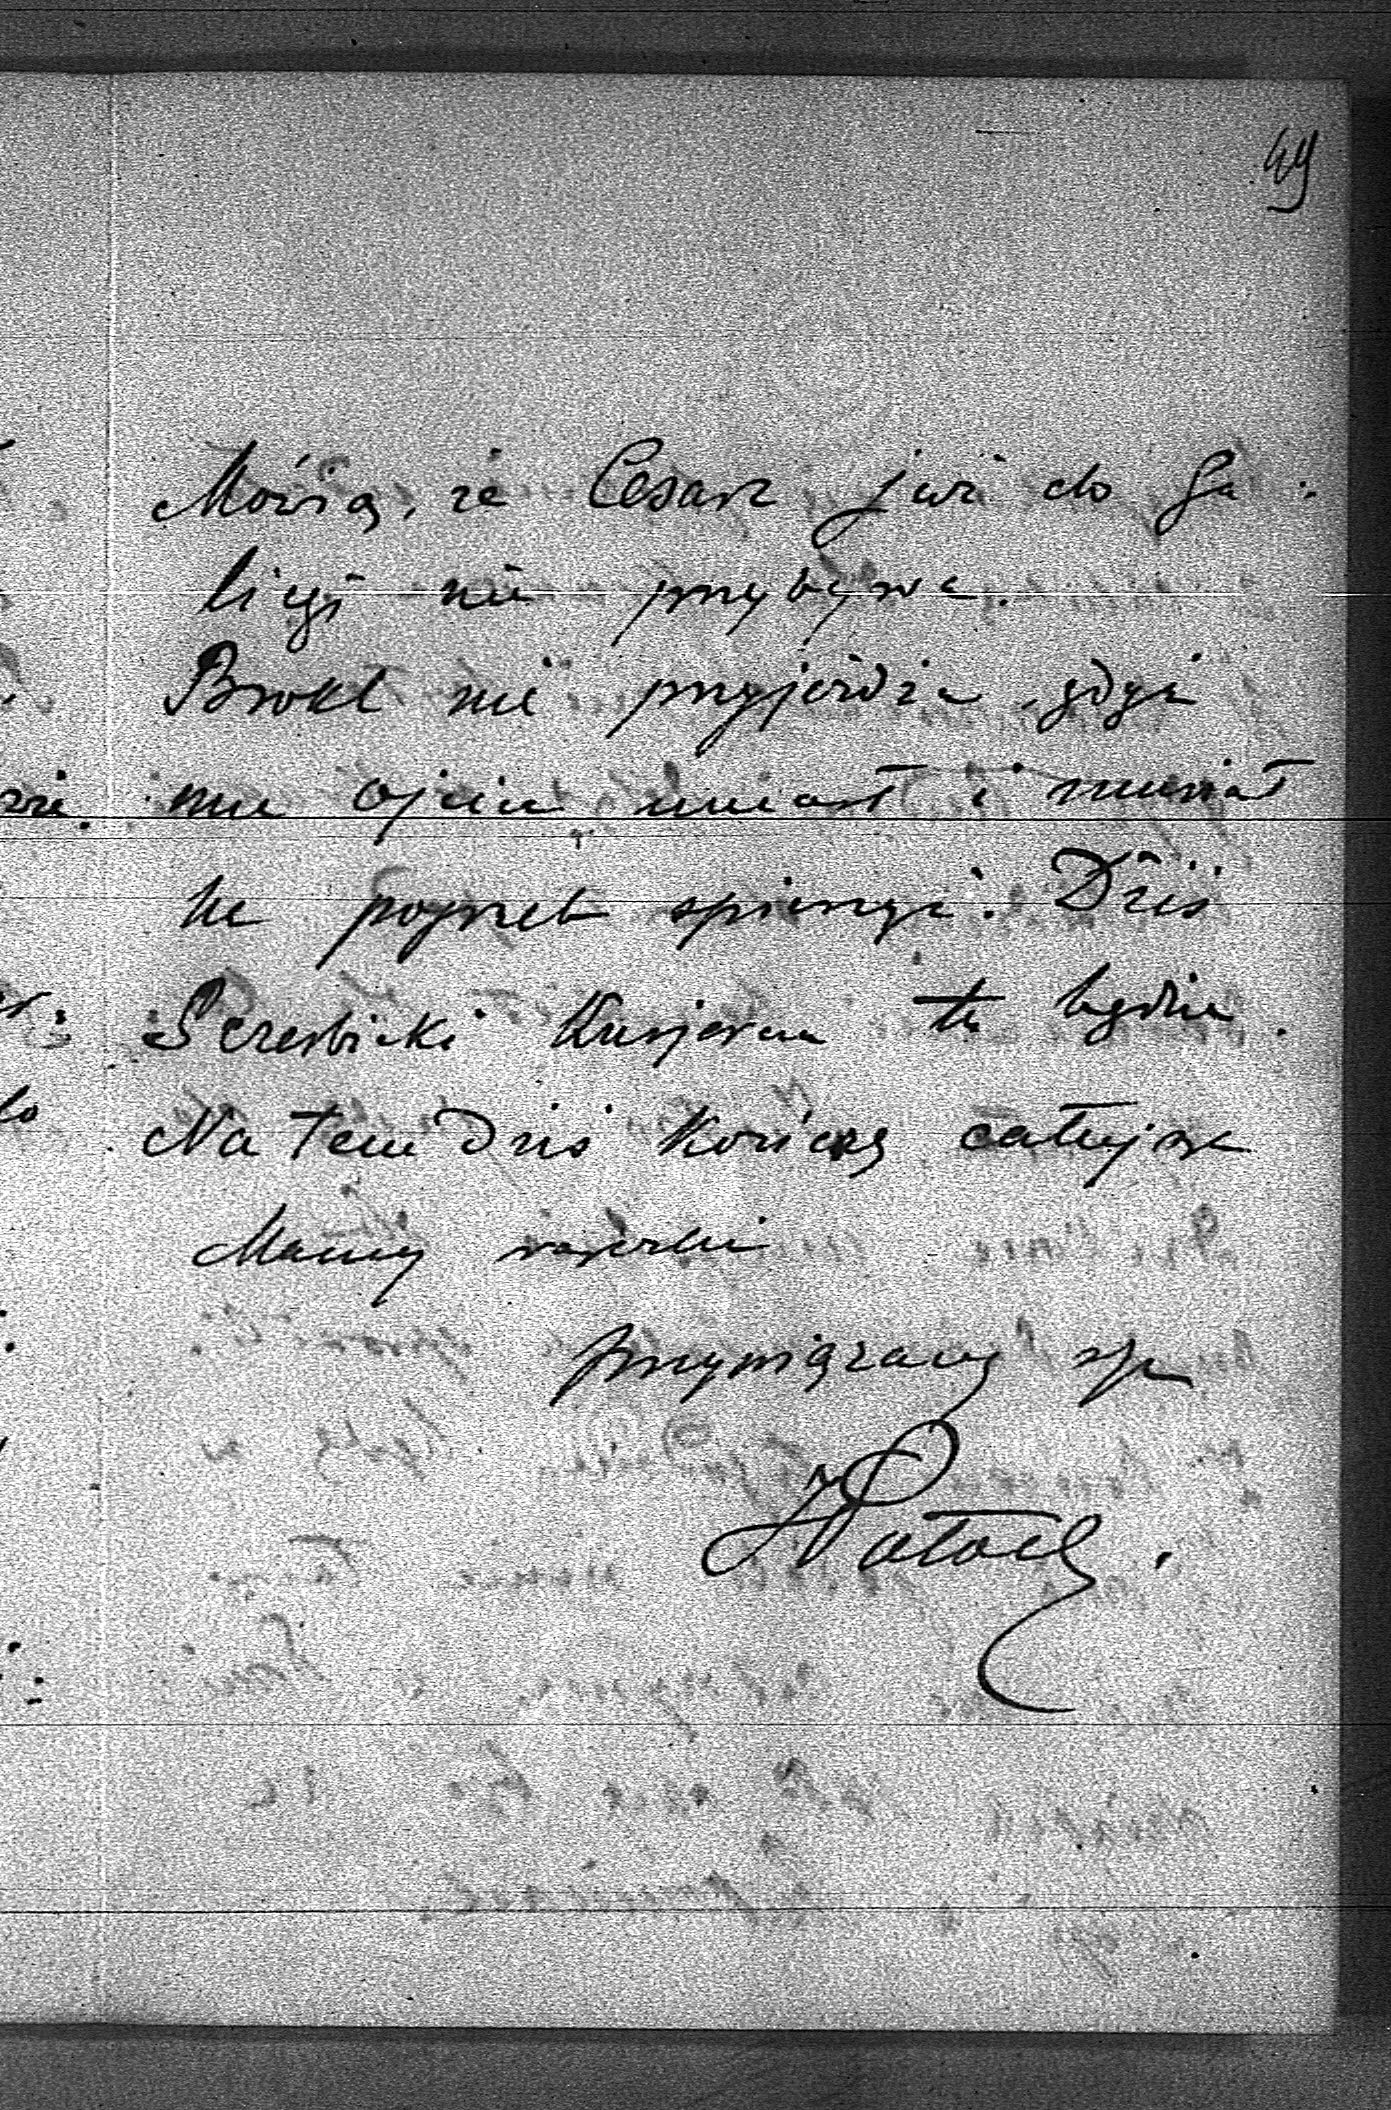 49
Mówią, że Cesarz już do Ga-
licyi nie przybywa.
Brokl nie przyjeżdża, gdyż
mu ojciec umarł i musiał
na pogrzeb spieszyć. Dziś
Szczerbicki Kurjerem tu będzie.
Na tem dziś kończę całuję
Mamy rączki
przywiązany
Potocki.